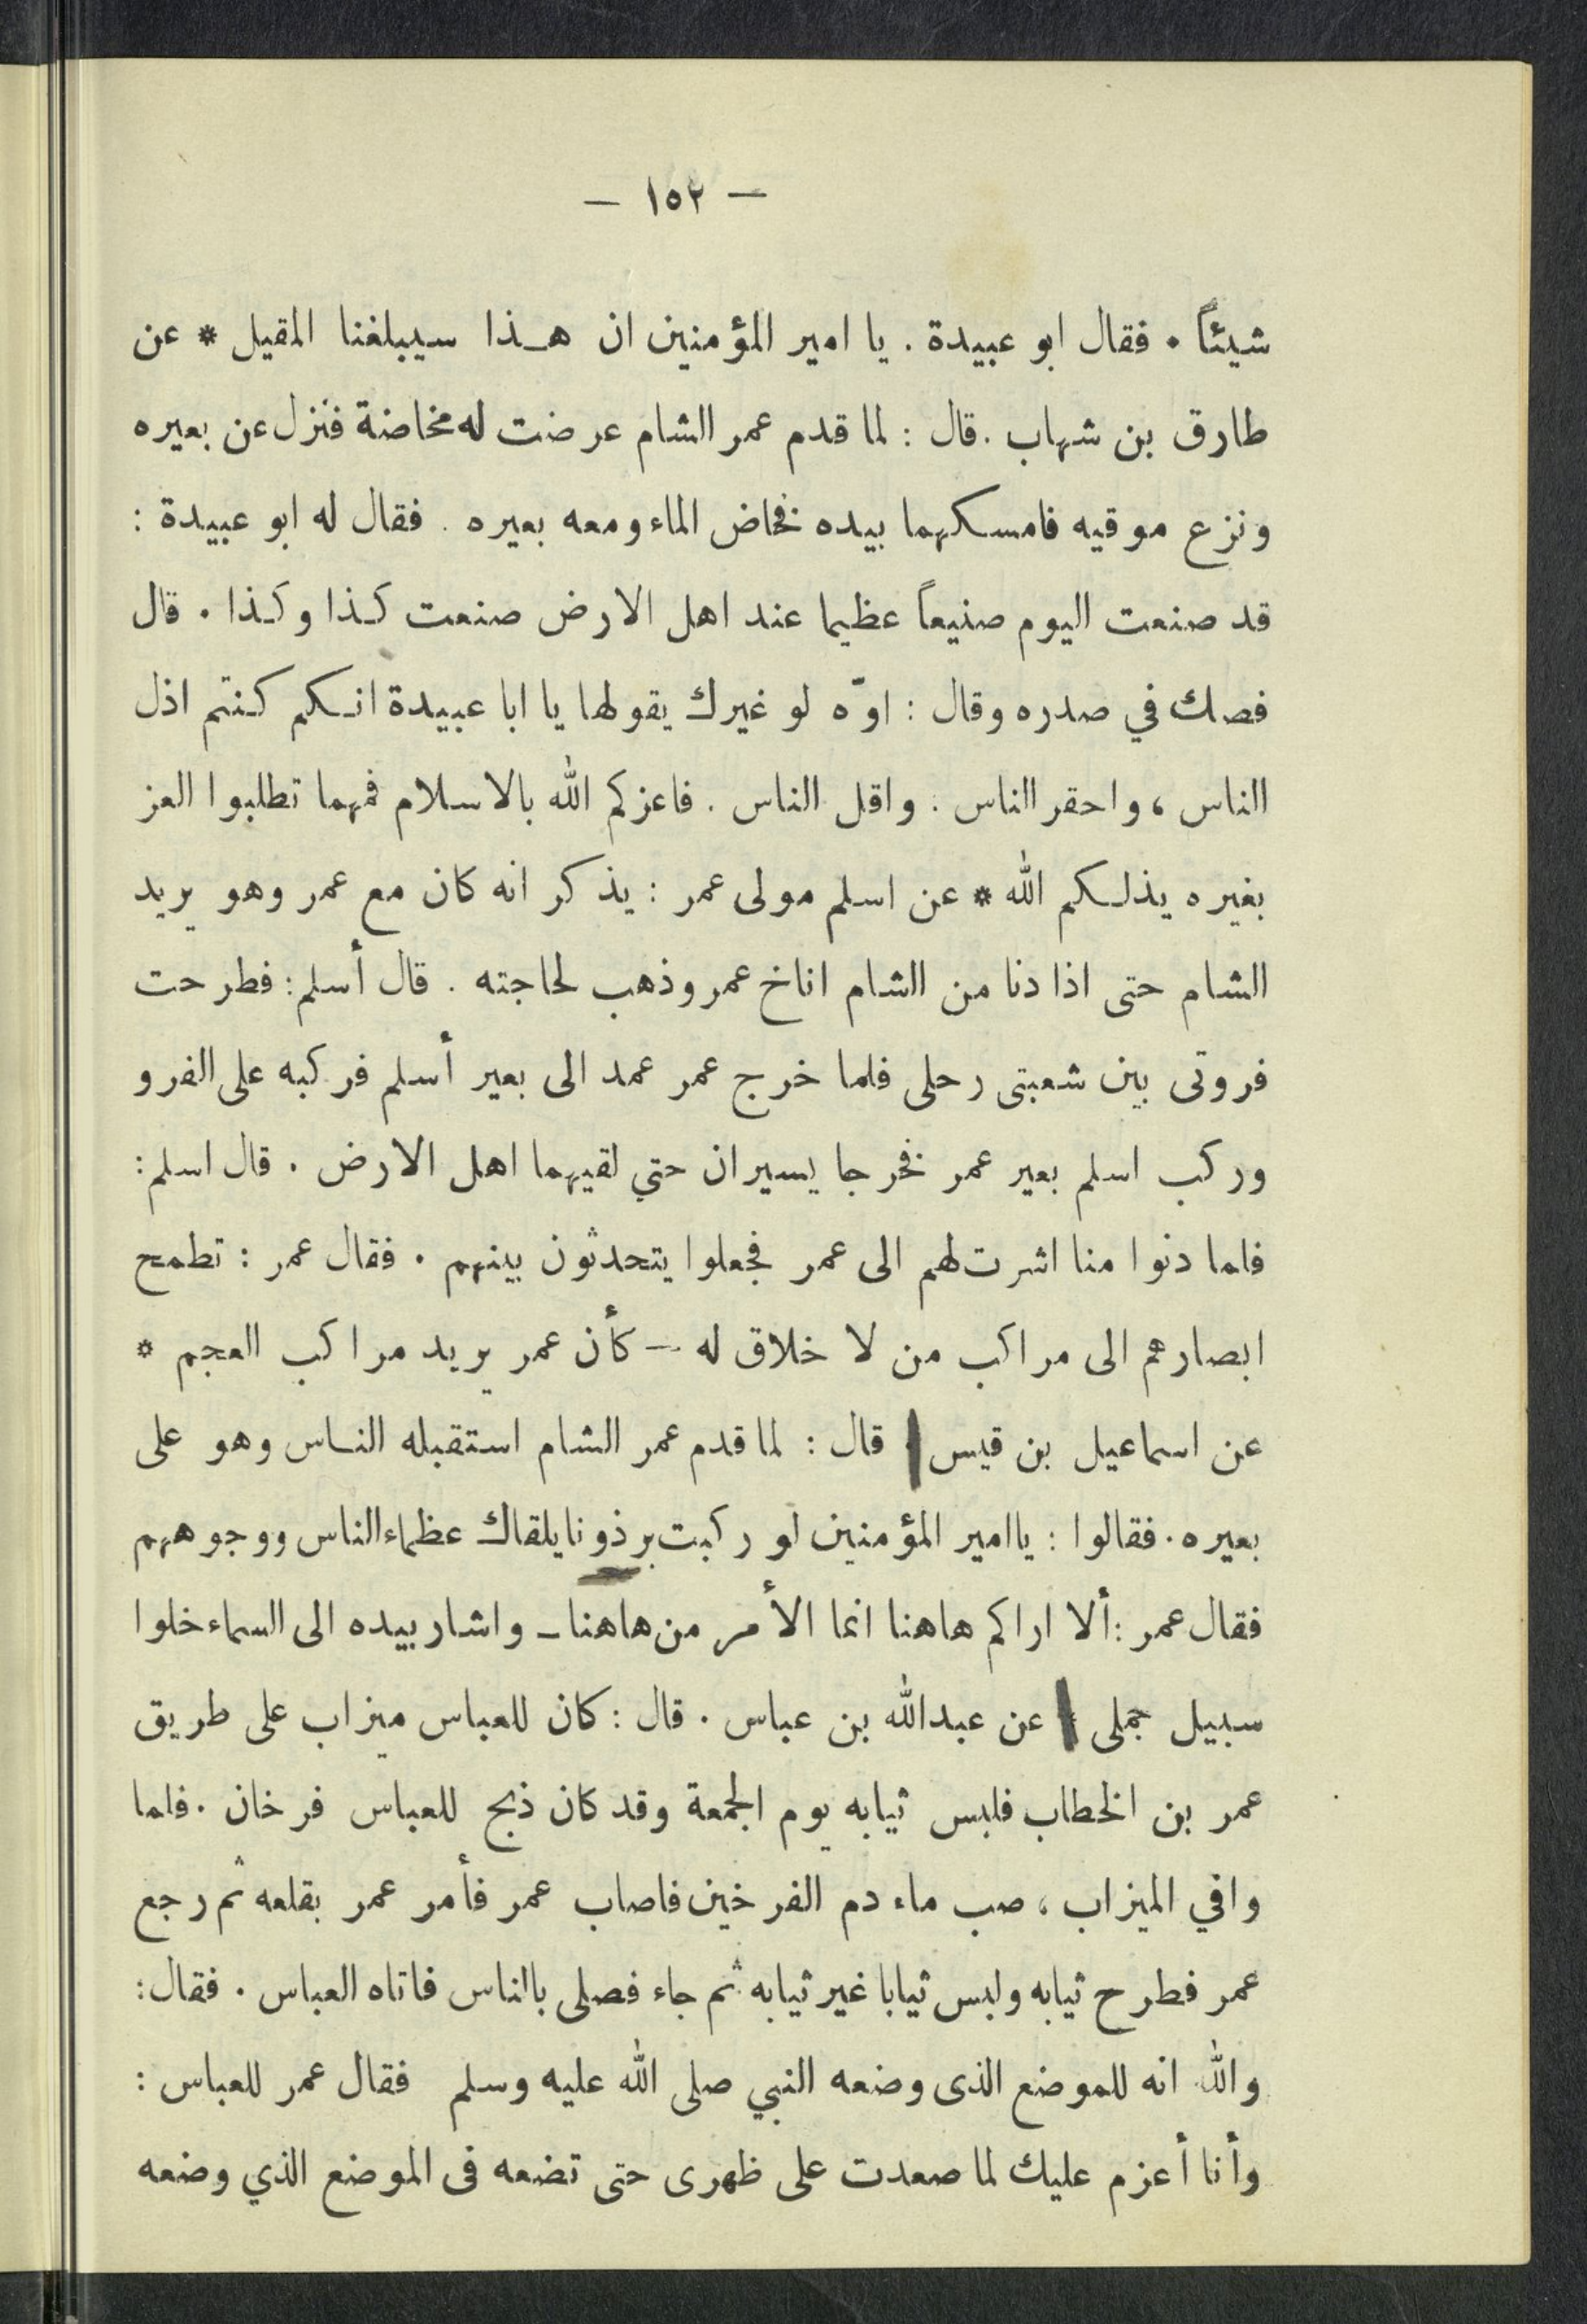 — ١٥٢ —
شيئاً . فقال ابو عبيدة . يا امير المؤمنين ان هـذا سيبلغنا المقيل * عن
طارق بن شهاب . قال : لما قدم عمر الشام عرضت له مخاضة فنزل عن بعيره
ونزع موقيه فامسكهما بيده فخاض الماء ومعه بعيره . فقال له ابو عبيدة :
قد صنعت اليوم صنيعاً عظيما عند اهل الارض صنعت كـذا وكـذا . قال
فصك في صدره وقال : اوّه لو غيرك يقولها يا ابا عبيدة انـكم كـنتم اذل
الناس ، واحقر الناس . واقل الناس . فاعزكم الله بالاسلام فمهما تطلبوا العز
بغيره يذلـكم الله * عن اسلم مولى عمر : يذكر انه كان مع عمر وهو يريد
الشام حتى اذا دنا من الشام اناخ عمر وذهب لحاجته . قال أسلم : فطرحت
فروتى بين شعبتى رحلى فلما خرج عمر عمد الى بعير أسلم فركبه على الفرو
وركب اسلم بعير عمر فخرجا يسيران حتي لقيهما اهل الارض . قال اسلم :
فلما دنوا منا اشرت لهم الى عمر فجعلوا يتحدثون بينهم . فقال عمر : تطمح
ابصارهم الى مراكب من لا خلاق له — كأن عمر يريد مراكب العجم *
عن اسماعيل بن قيس قال : لما قدم عمر الشام استقبله النـاس وهو على
بعيره . فقالوا : ياامير المؤمنين لو ركبت برذونا يلقاك عظماء الناس ووجوههم
فقال عمر : ألا اراكم هاهنا انما الأمر من هاهنا ـ واشار بيده الى السماء خلوا
سبيل جملى * عن عبدالله بن عباس . قال : كان للعباس ميزاب على طريق
عمر بن الخطاب فلبس ثيابه يوم الجمعة وقد كان ذبح للعباس فرخان . فلما
وافي الميزاب ، صب ماء دم الفرخين فاصاب عمر فأمر عمر بقلعه ثم رجع
عمر فطرح ثيابه ولبس ثيابا غير ثيابه ثم جاء فصلى بالناس فاتاه العباس . فقال :
والله انه للموضع الذى وضعه النبي صلى الله عليه وسلم فقال عمر للعباس :
وأنا أعزم عليك لما صعدت على ظهرى حتى تضعه فى الموضع الذي وضعه